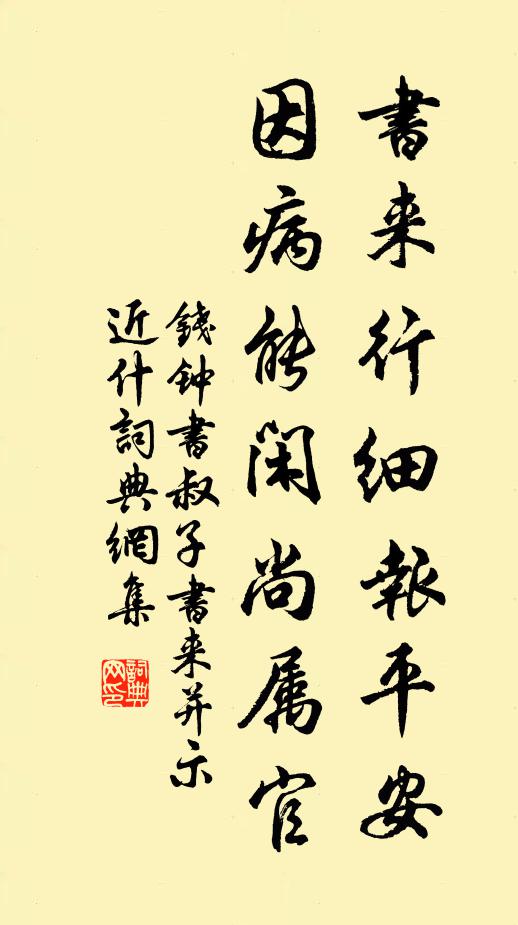 書来行细報平安
因病能閑尚属官
錢钟書叔子書来并示
近什詞典網集
詞典网印